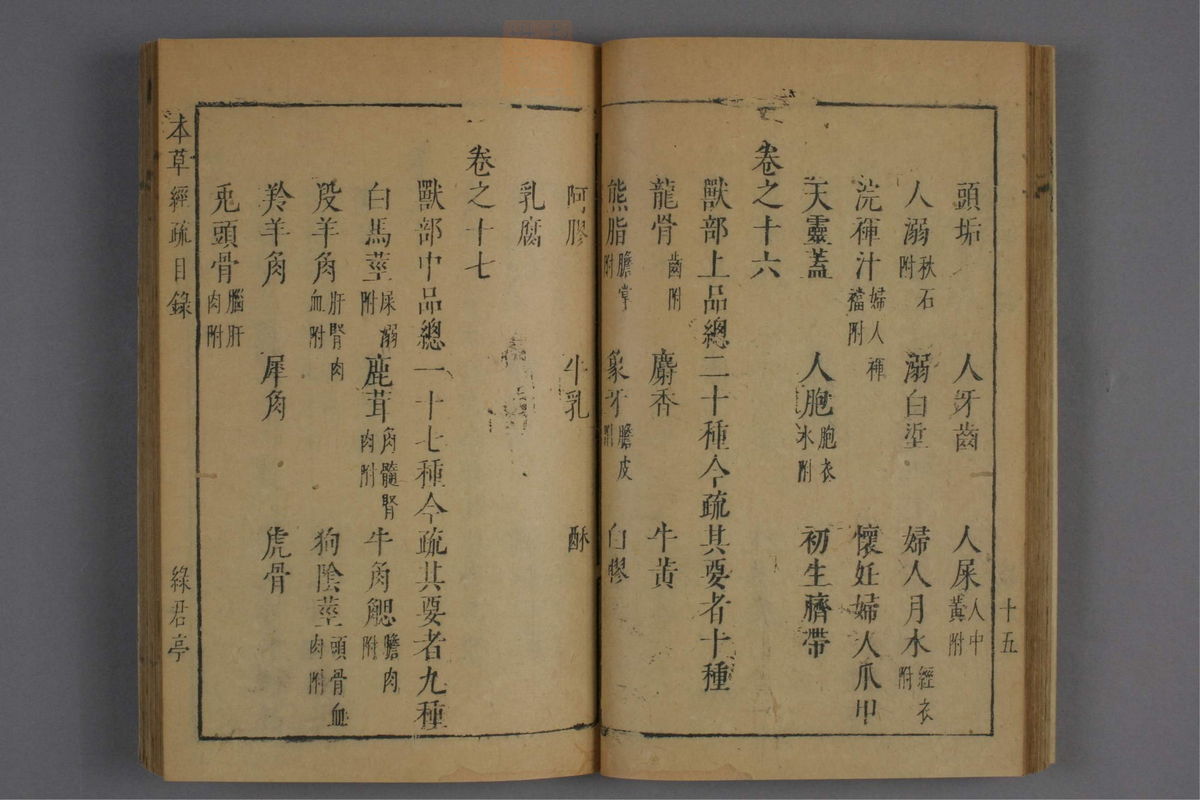 頭垢 人牙齒 人屎人中黃附
人溺秋石附 溺白垽 婦人月水經衣附
浣褌汁婦人褌襠附 懷妊婦人爪甲
天靈蓋 人胞胞衣水附 初生臍帶
卷之十六
獸部上品總二十種今疏其要者十種
龍骨齒附 麝香 牛黃
熊脂膽掌附 象牙膽皮附 白膠
十五
阿膠 牛乳 酥
乳腐
卷之十七
獸部中品總一十七種今疏其要者九種
白馬莖屎溺附 鹿茸角髓腎肉附 牛角䚡膽肉附
羖羊角肝腎肉血附 狗陰莖頭骨血肉附
羚羊角 犀角 虎骨
兎頭骨腦肝肉附
本草經疏目錄 綠君亭